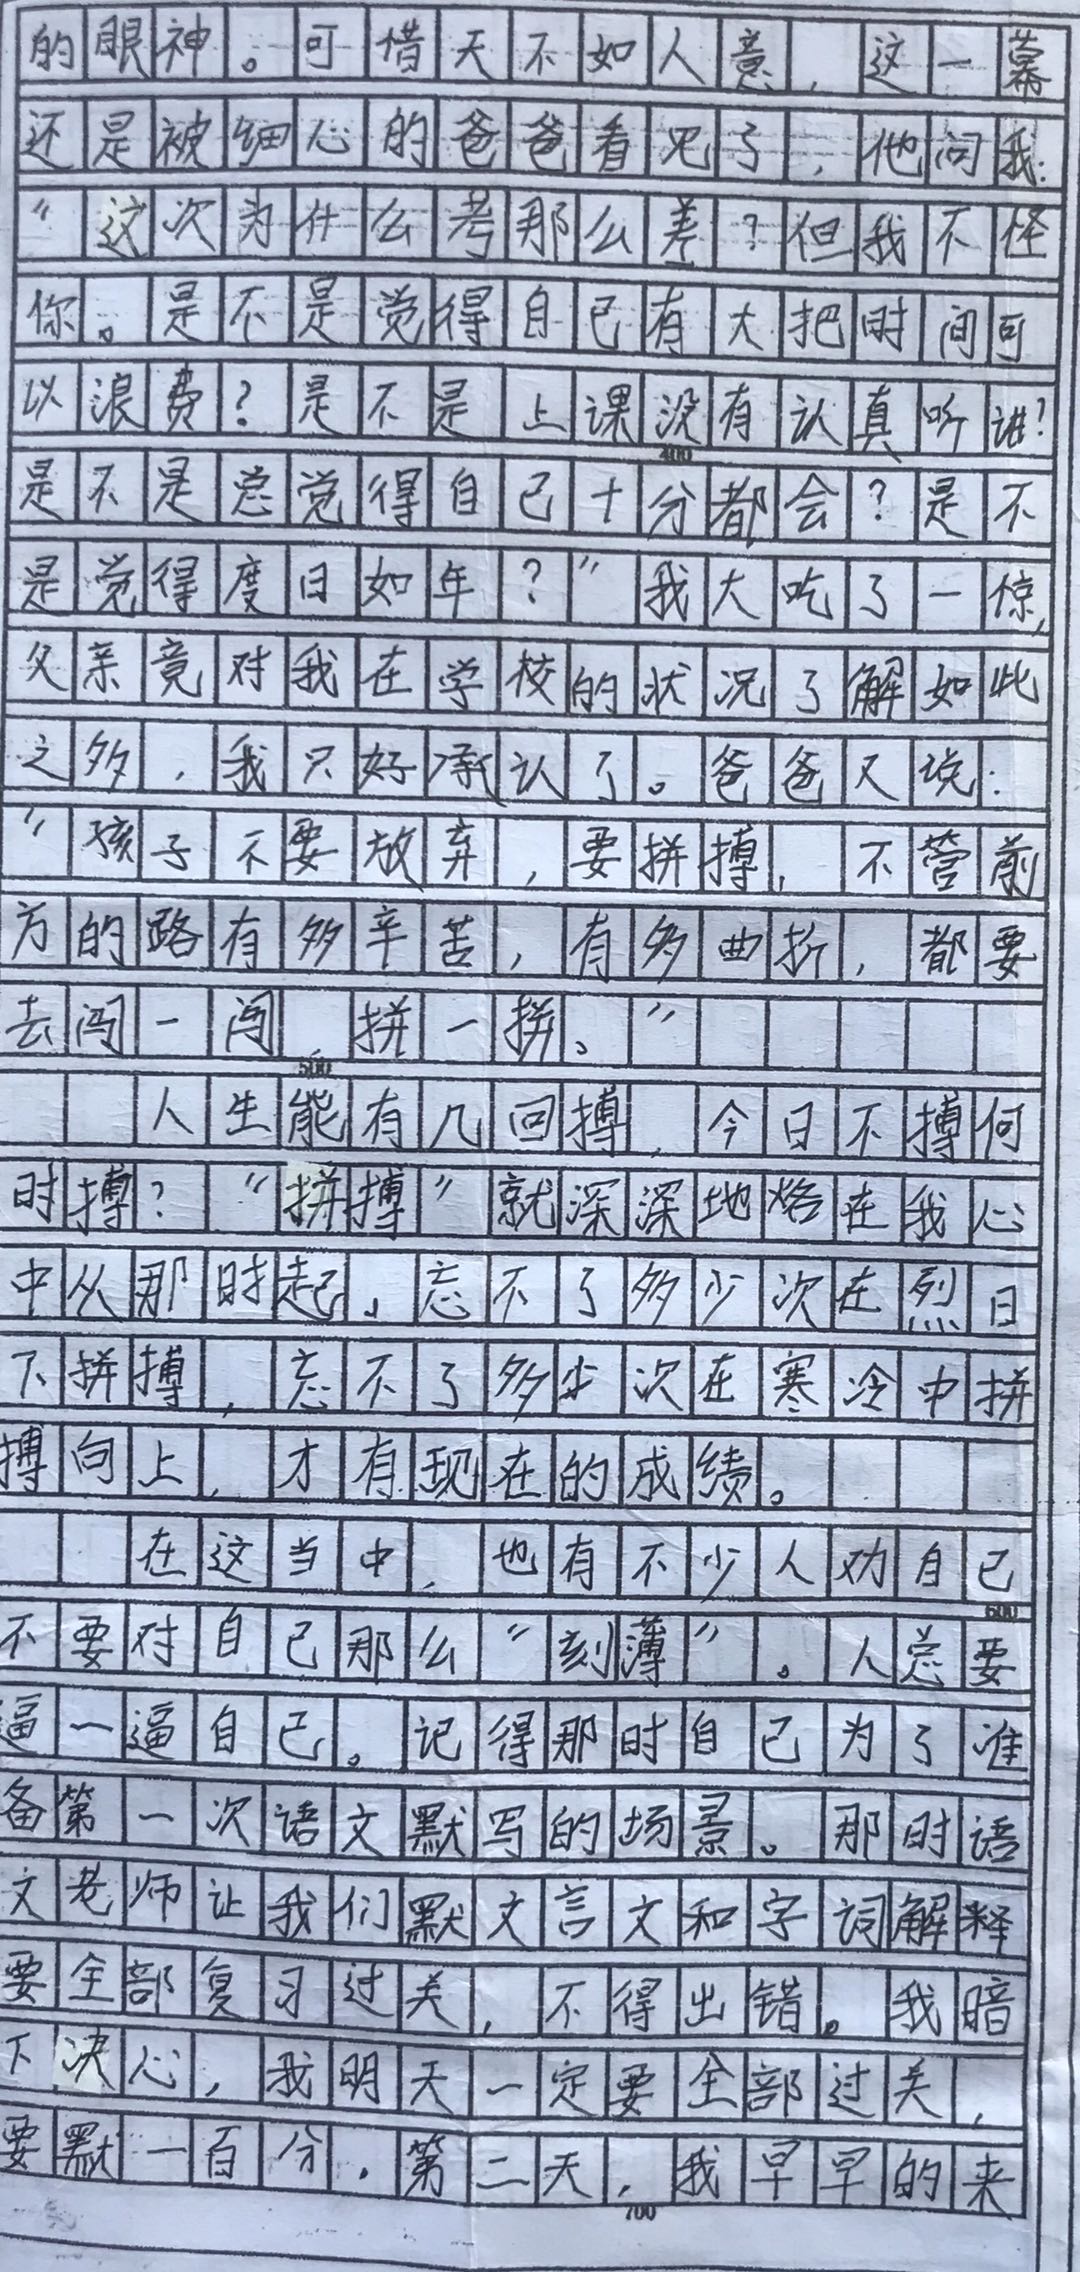 的眼神。可惜天不如人意，这一幕
还是被细心的爸爸看见了，他问我：
“这次为什么考那么差？但我不怪
你。是不是觉得自己有大把时间可
以浪费？是不是上课没有认真听谁？
400
是不是总觉得自己十分都会？是不
是觉得度日如年？”我大吃了一惊，
父亲竟对我在学校的状况了解如此
之多，我只好承认了。爸爸又说：
“孩子不要放弃，要拼搏，不管前
方的路有多辛苦，有多曲折，都要
去闯一闯 拼一拼。”
500
人生能有几回搏，今日不搏何
时搏？“拼搏”就深深地烙在我心
中从那时起。忘不了多少次在烈日
下拼搏，忘不了多少次在寒冷中拼
搏向上，才有现在的成绩。
在这当中，也有不少人劝自己
600
不要对自己那么“刻薄”。人总要
逼一逼自己。记得那时自己为了准
备第一次语文默写的场景。那时语
文老师让我们默文言文和字词解释
要全部复习过关，不得出错。我暗
下决心，我明天一定要全部过关，
要默一百分。第二天，我早早的来
700